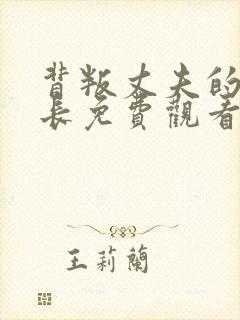 背叛丈夫的
長免費觀看
王莉蘭